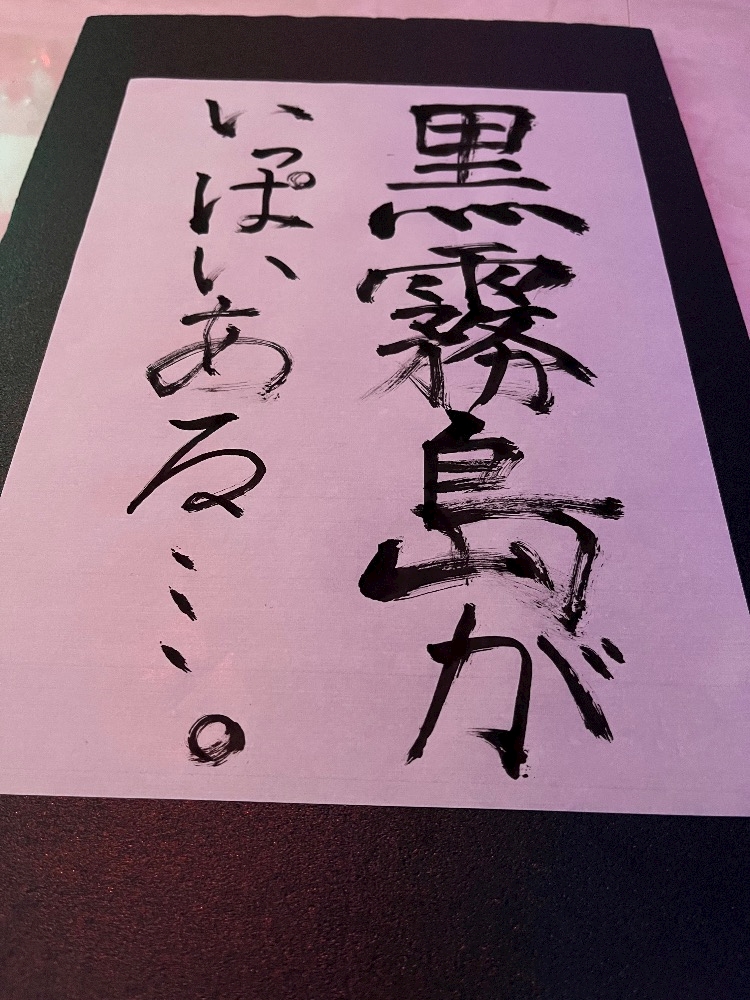 黒霧島が
いっぱいある…。